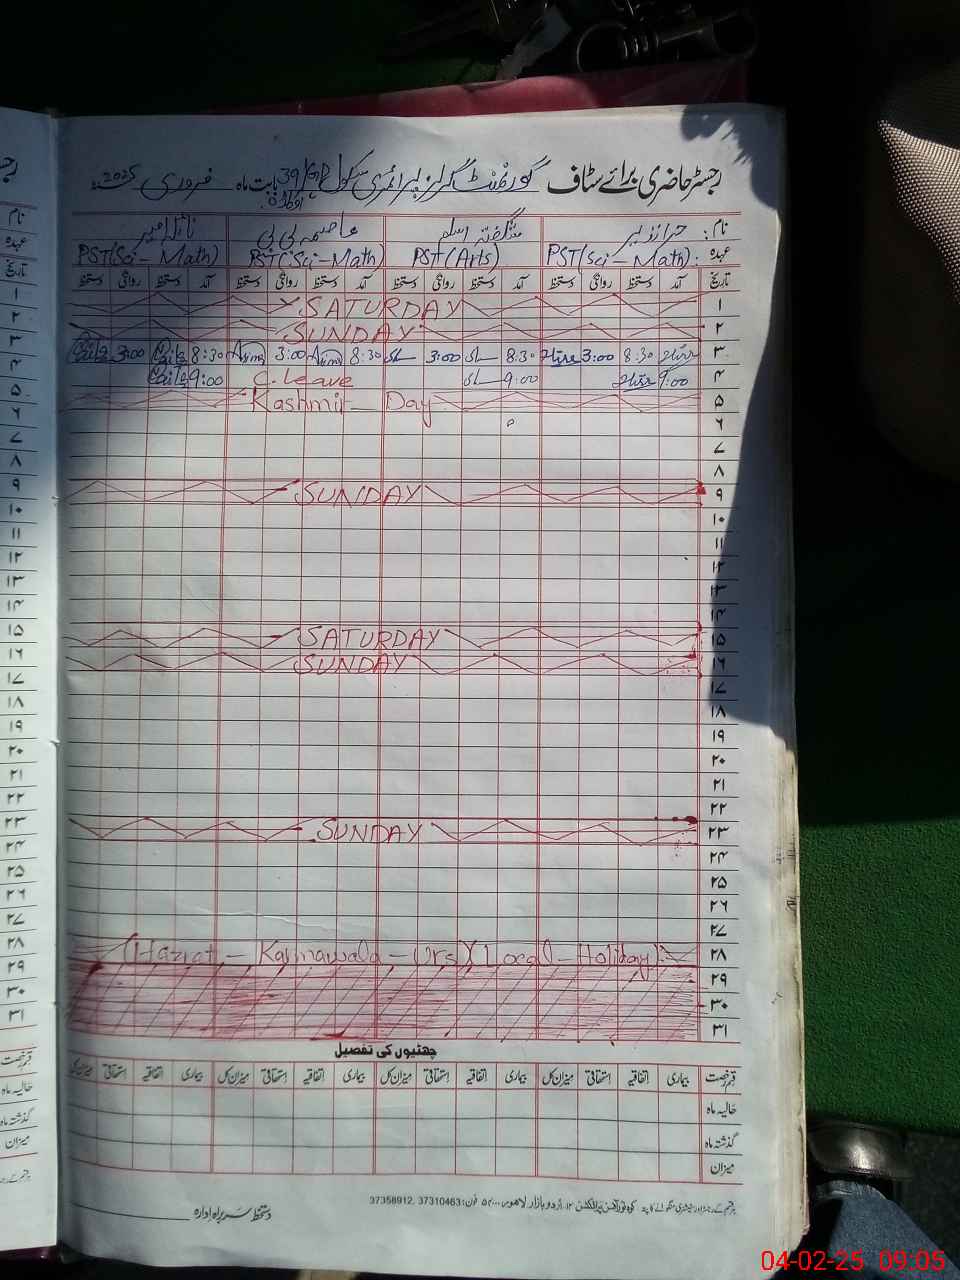 رجسٹر حاضری برائے سٹاف گورنمنٹ گرلز پرائمری سکول 39/GD بابت ماہ فروری 2025
نام: شگفتہ اسلم عاصمہ بی بی
عہدہ: PST(Sci-Math) PST(Arts) PST(Sci-Math) PST(Sci-Math)
تاریخ آمد دستخط روانگی دستخط آمد دستخط روانگی دستخط آمد دستخط روانگی دستخط آمد دستخط روانگی دستخط
۱ SATURDAY
۲ SUNDAY
۳ 8:30 3:00 8:30 3:00 8:30 3:00 8:30 3:00
۴ 9:00 9:00 C. Leave 9:00
۵ Kashmir - Day
۶
۷
۸
۹ SUNDAY
۱۰
۱۱
۱۲
۱۳
۱۴
۱۵ SATURDAY
۱۶ SUNDAY
۱۷
۱۸
۱۹
۲۰
۲۱
۲۲
۲۳ SUNDAY
۲۴
۲۵
۲۶
۲۷
۲۸ (Hazrat - Karmawala - Urs) (Local - Holiday)
۲۹
۳۰
۳۱
چھٹیوں کی تفصیل
قسم رخصت بیماری اتفاقیہ استحقاقی میزان کل بیماری اتفاقیہ استحقاقی میزان کل بیماری اتفاقیہ استحقاقی میزان کل بیماری اتفاقیہ استحقاقی میزان کل
حالیہ ماہ
گذشتہ ماہ
میزان
اردو بازار لاہور فون: 37310463, 37358912
دستخط سربراہ ادارہ
04-02-25 09:05